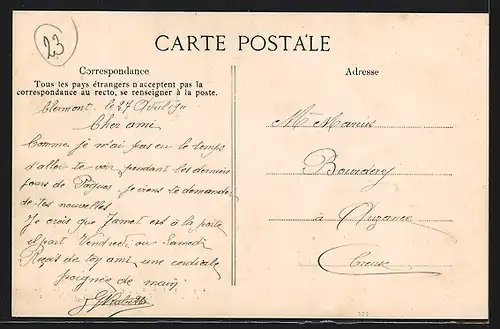 23
CARTE POSTALE
Correspondance
Tous les pays étrangers n'acceptent pas la
correspondance au recto, se renseigner à la poste.
Clermont, le 27 Avril
Cher ami
Comme je n'ai pas eu le temps
d'aller te voir pendant les derniers
jours de Pâques je viens te demander
de tes nouvelles
Je crois que Jamet est à la poste
il part Vendredi ou Samedi
Reçois de ton ami une cordiale
poignée de main
Adresse
Mr Marius
à Auzance
Creuse